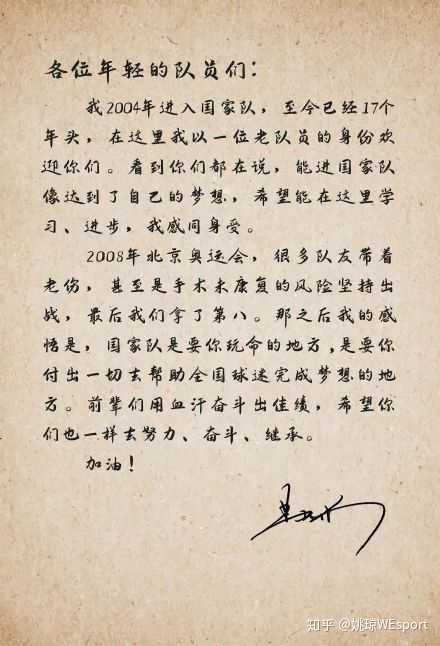 各位年轻的队员们：
我2004年进入国家队，至今已经17个
年头，在这里我以一位老队员的身份欢
迎你们。看到你们都在说，能进国家队
像达到了自己的梦想，希望能在这里学
习、进步，我感同身受。
2008年北京奥运会，很多队友带着
老伤，甚至是手术未康复的风险坚持出
战，最后我们拿了第八。那之后我的感
悟是，国家队是要你玩命的地方，是要你
付出一切去帮助全国球迷完成梦想的地
方。前辈们用血汗奋斗出佳绩，希望你
们也一样去努力、奋斗、继承。
加油！
知乎 @姚琼WEsport